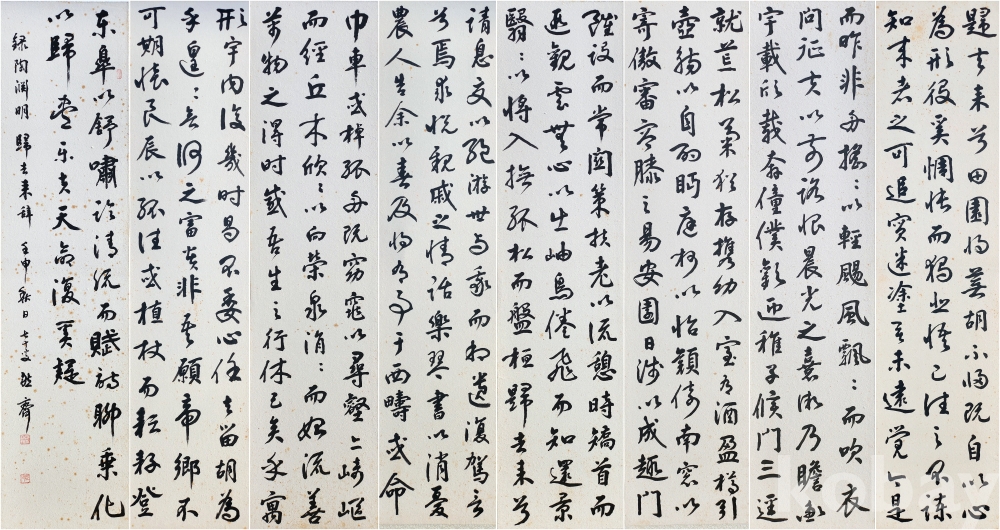 歸去來兮田園將蕪胡不歸既自以心
為形役奚惆悵而獨悲悟已往之不諫
知來者之可追實迷塗其未遠覺今是
而昨非舟搖〻以輕颺風飄〻而吹衣
問征夫以前路恨晨光之熹微乃瞻衡
宇載欣載奔僮僕歡迎稚子候門三逕
就荒松菊猶存攜幼入室有酒盈樽引
壺觴以自酌眄庭柯以怡顏倚南窓以
寄傲審容膝之易安園日涉以成趣門
雖設而常關策扶老以流憩時矯首而
遐觀雲無心以出岫鳥倦飛而知還景
翳〻以將入撫孤松而盤桓歸去來兮
請息交以絶游世与我而相遺復駕言
兮焉求悅親戚之情話樂琴書以消憂
農人告余以春及將有事于西疇或命
巾車或棹孤舟既窈窕以尋壑亦崎嶇
而經丘木欣〻以向榮泉涓〻而始流善
萬物之得時感吾生之行休已矣乎寓
形宇内復幾時曷不委心任去留胡為
乎遑〻兮何之富貴非吾願帝鄉不
可期懷良辰以孤往或植杖而耘耔登
東皋以舒嘯臨清流而賦詩聊乗化
以歸盡樂夫天命復奚疑
録陶淵明歸去來辭 壬申秋日
kobay